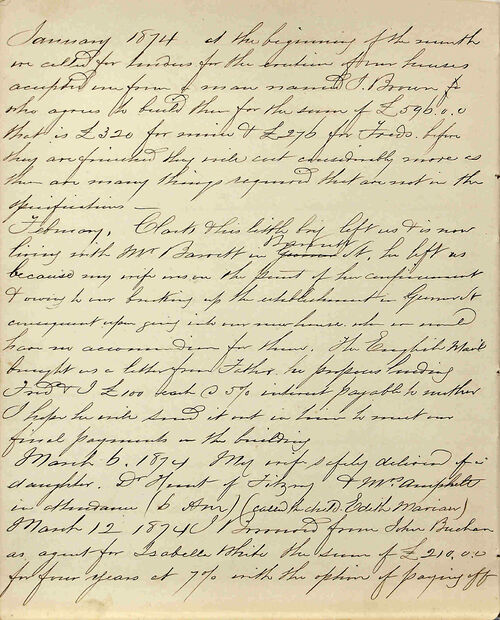 January 1874 at the beginning of the month
we called for tenders for the erection of our houses
accepted one from a man named J. Brown
who agrees to build them for the sum of £596.0.0
that is £320 for mine & £276 for Freds. before
they are finished they will cost considerably more as
there are many things required that are not in the
specifications —
February, Clark & his little boy left us & is now
living with Mr Barrett in Barrett St, he left us
because my wife was on the point of her confinement
& owing to our breaking up the establishment in St
consequent upon going into our new house. when we would
have no accommodation for them. The English Mail
brought us a letter from Father. he proposes lending
Fred & I £100 each @ 5% interest payable to mother
I hope he will send it out in time to meet our
final payments on the building
March 6. 1874 My wife safely delivered of a
daughter. Dr Hunt of Fitzroy & Mrs Campbell
in attendance (6 AM) (called the child Edith Marian)
March 12 1874 I Borrowed from John Buchan
as agent for Isabella White the sum of £210.0.0
for four years at 7% with the option of paying off